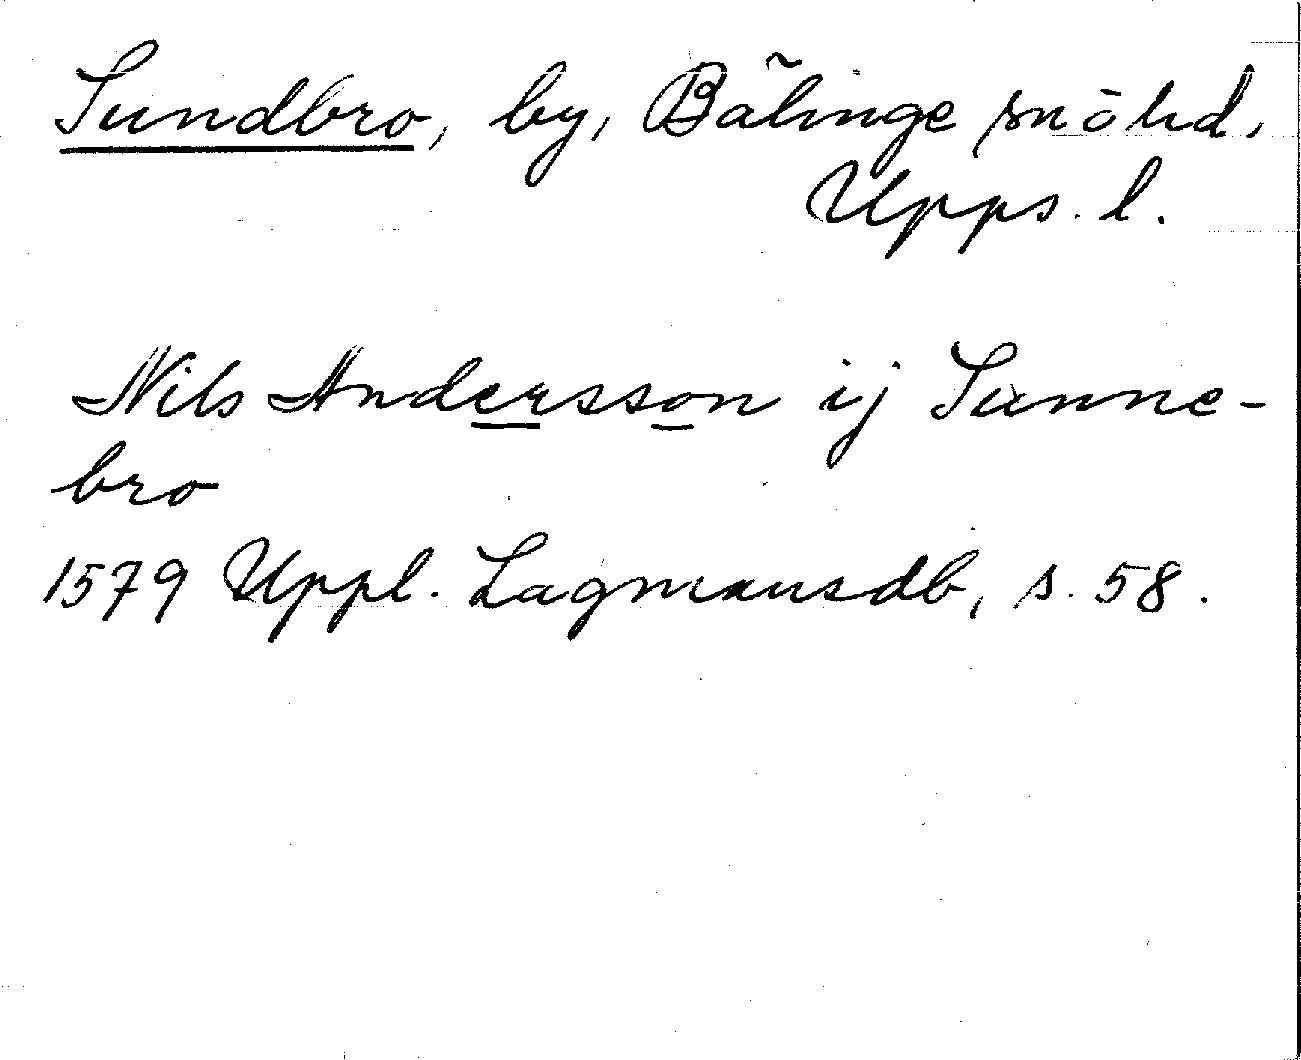 Sundbro, by, Bälinge sn o hd,
Upps. l.
Nils Andersson ij Sunne-
bro
1579 Uppl. Lagmansdb, s. 58.